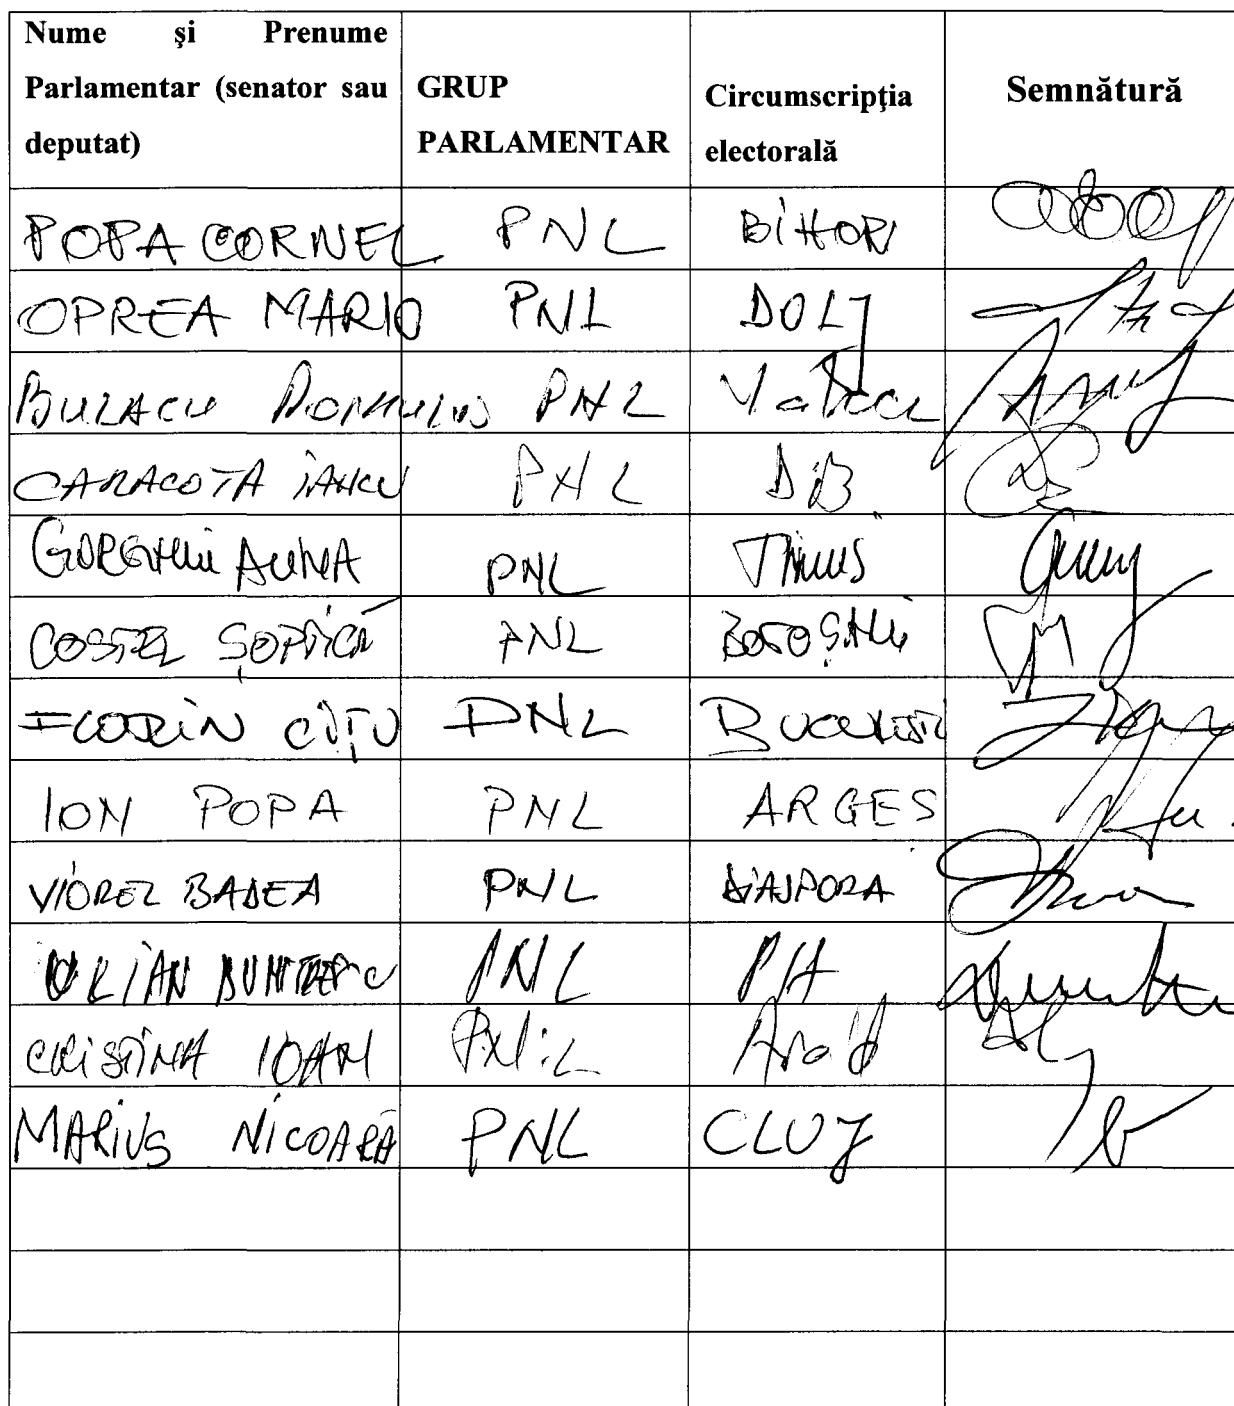 Nume și Prenume
Parlamentar (senator sau
deputat)
GRUP
PARLAMENTAR
Circumscripția
electorală
Semnătură
POPA CORNEL PNL BIHOR
OPREA MARIO PNL DOLJ
BULACU ROMULUS PNL Valcea
CARACOTA IANCU PNL DB
GORGHIU ALINA PNL TIMIS
COSTEL ȘOPTICĂ PNL BOTOȘANI
FLORIN CÎȚU PNL BUCURESTI
ION POPA PNL ARGEȘ
VIOREL BADEA PNL DIASPORA
DUMITRESCU PNL PH
CRISTINA IOAN PNL Arad
MARIUS NICOARĂ PNL CLUJ